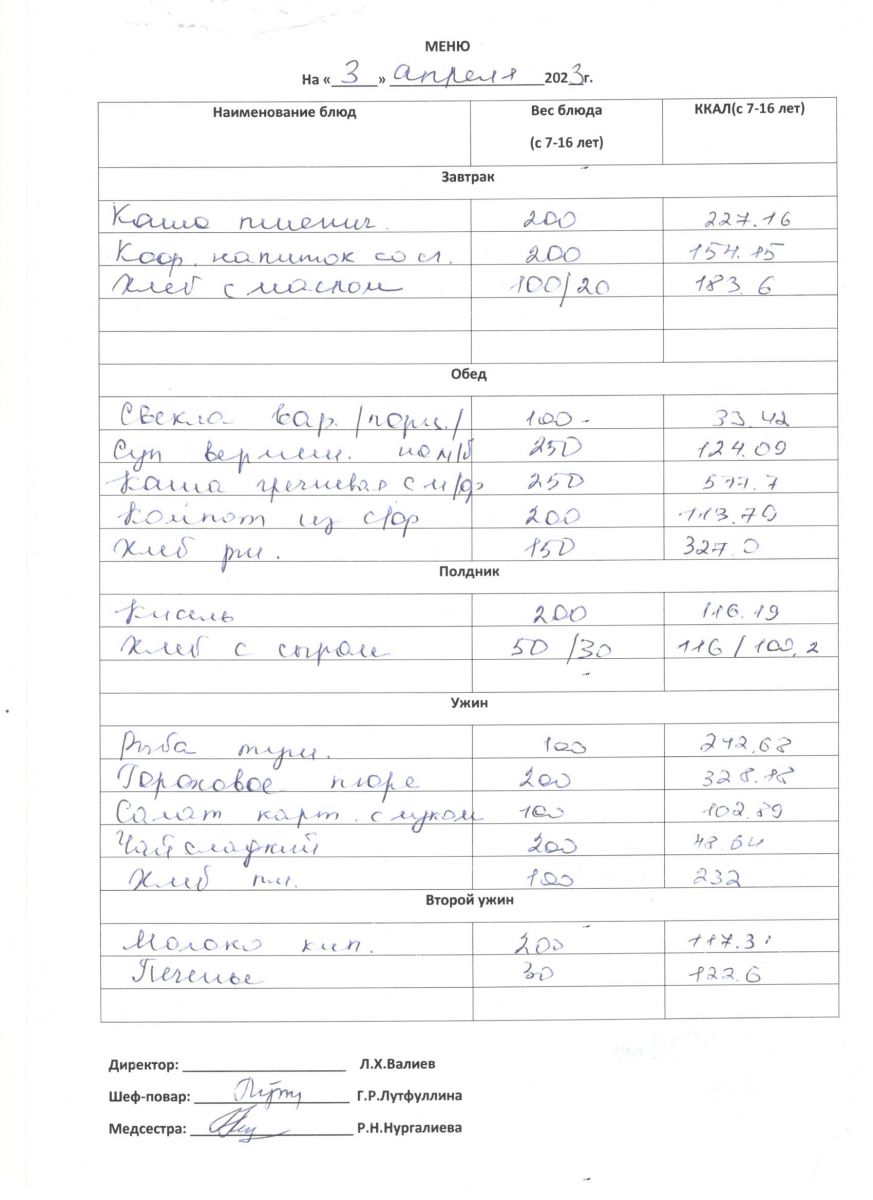 МЕНЮ
На « 3 » апреля 2023г.
Наименование блюд Вес блюда (с 7-16 лет) ККАЛ(с 7-16 лет)
Завтрак
Каша пшенич. 200 227.16
Коф. напиток со сл. 200 154.15
Хлеб с маслом 100/20 183.6
Обед
Свекла вар. /порц./ 100 33.42
Суп вермиш. на м/б 250 124.09
Каша гречневая с м/ф 250 511.7
Компот из с/фр 200 113.79
Хлеб рж. 150 327.0
Полдник
Кисель 200 116.19
Хлеб с сыром 50 /30 116 / 100,2
Ужин
Рыба туш. 100 242.68
Гороховое пюре 200 328.18
Салат карт. с луком 100 102.89
Чай сладкий 200 48.64
Хлеб пш. 100 232
Второй ужин
Молоко кип. 200 117.31
Печенье 30 122.6
Директор: Л.Х.Валиев
Шеф-повар: Г.Р.Лутфуллина
Медсестра: Р.Н.Нургалиева